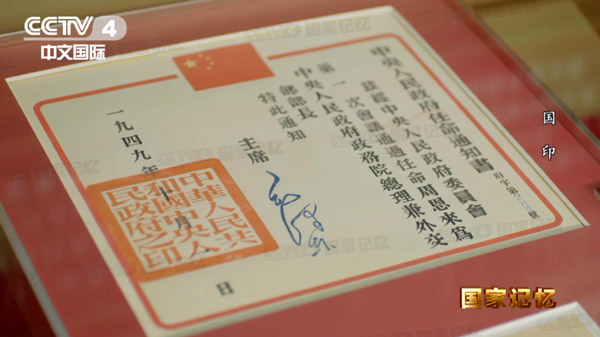 CCTV 4
中文国际
国印
中央人民政府任命通知書
府字第 號
茲經中央人民政府委員會
第一次會議通過任命周恩來為
中央人民政府政務院總理兼外交
部部長
特此通知
主席
一九四九年十月 日
中華人民共
和國中央人
民政府之印
国家记忆